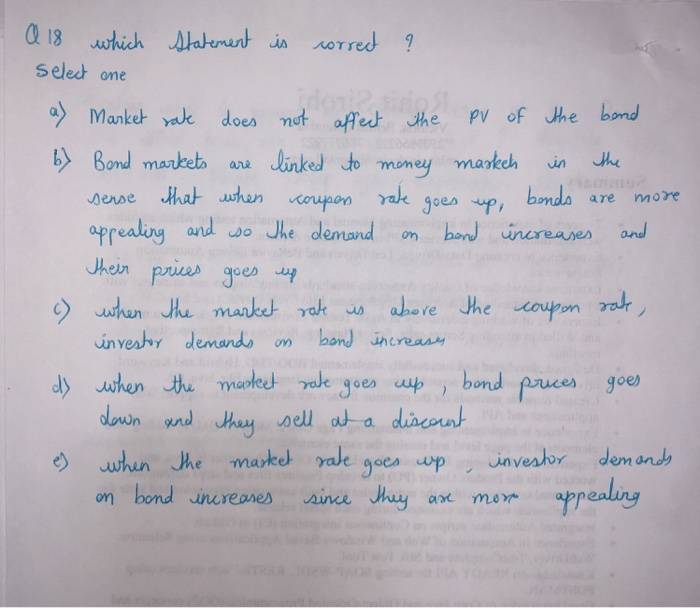 Q 18 which Statement is correct ?
Select one
a) Market rate does not affect the PV of the bond
b) Bond markets are linked to money markets in the
sense that when coupon rate goes up, bonds are more
appealing and so the demand on bond increases and
their prices goes up
c) when the market rate is above the coupon rate,
investor demands on bond increases
d) when the market rate goes up, bond prices goes
down and they sell at a discount
e) when the market rate goes up, investor demands
on bond increases since they are more appealing